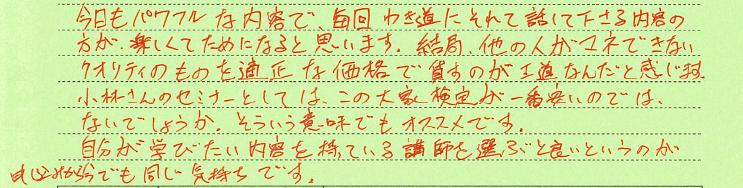 今日もパワフルな内容で、毎回わき道にそれて話して下さる内容の
方が、楽しくてためになると思います。結局、他の人がマネできない
クオリティのものを適正な価格で貸すのが王道なんだと感じます
小林さんのセミナーとしては、この大家検定が一番安いのでは、
ないでしょうか。そういう意味でもオススメです。
自分が学びたい内容を持っている講師を選ぶと良いというのが
から今でも同じ気持ちです。